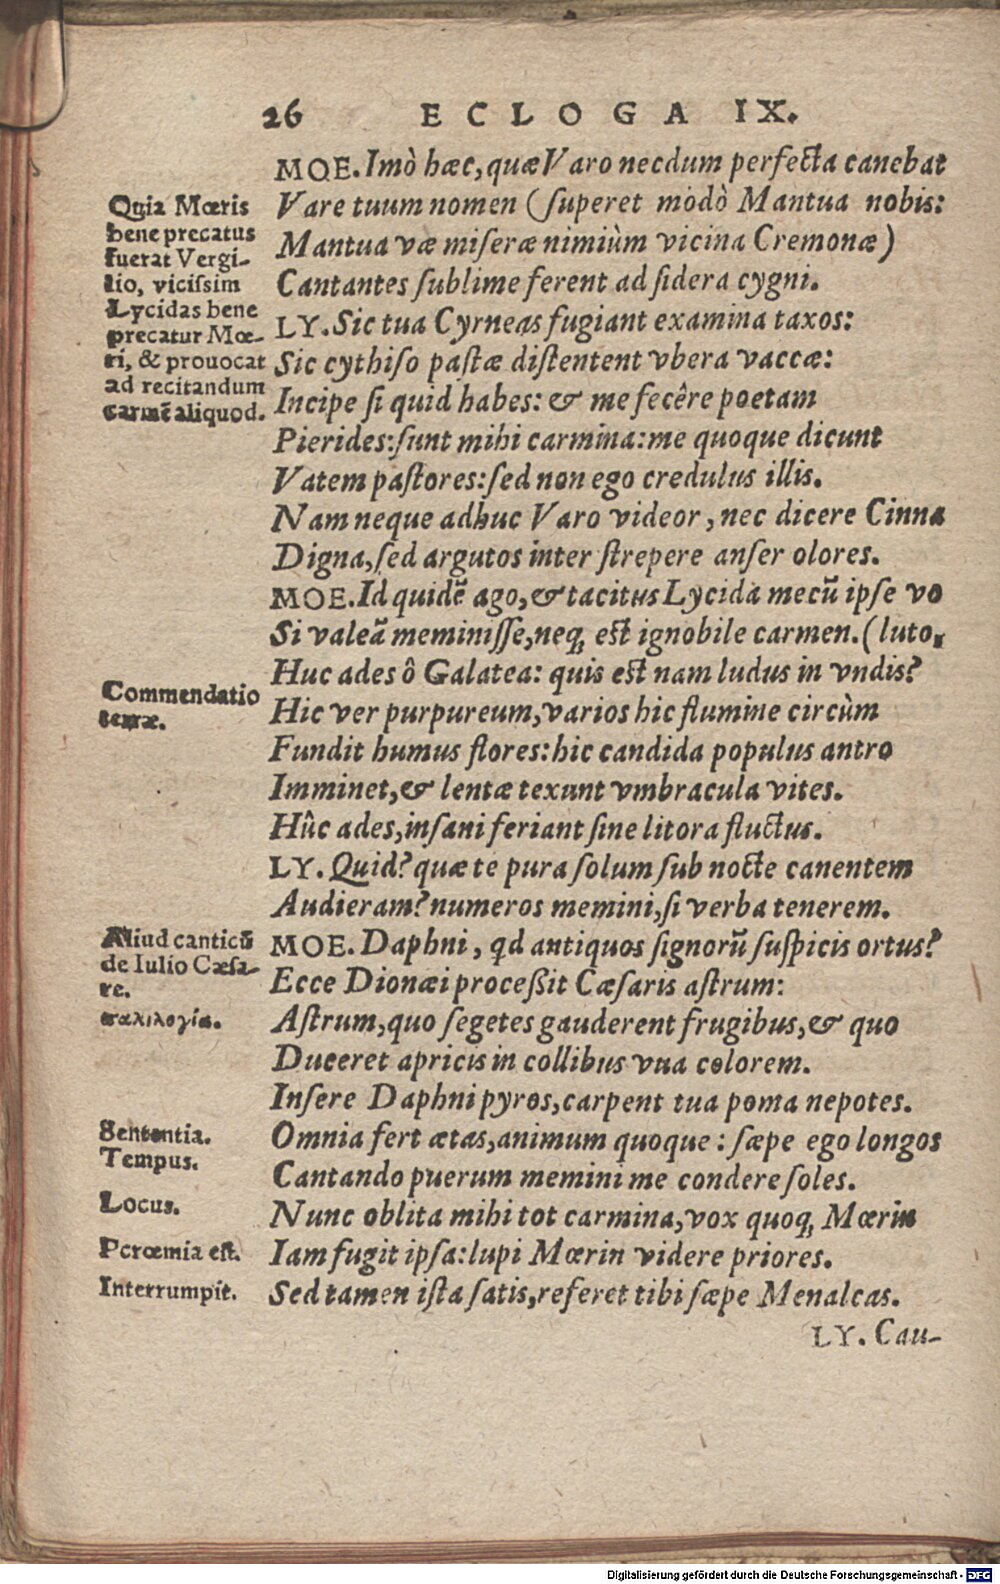 26 ECLOGA IX.
MOE. Imò hæc, quæ Varo necdum perfecta canebat
Vare tuum nomen (ſuperet modò Mantua nobis:
Mantua væ miſeræ nimiùm vicina Cremonæ)
Cantantes ſublime ferent ad ſidera cygni.
LY. Sic tua Cyrneas fugiant examina taxos:
Sic cythiſo paſtæ diſtentent vbera vaccæ:
Incipe ſi quid habes: & me fecêre poetam
Pierides: ſunt mihi carmina: me quoque dicunt
Vatem paſtores: ſed non ego credulus illis.
Nam neque adhuc Varo videor, nec dicere Cinna
Digna, ſed argutos inter ſtrepere anſer olores.
MOE. Id quidẽ ago, & tacitus Lycida mecũ ipſe vo
Si valeã meminiſſe, neq; eſt ignobile carmen. (luto,
Huc ades ô Galatea: quis eſt nam ludus in vndis?
Hic ver purpureum, varios hic flumine circùm
Fundit humus flores: hic candida populus antro
Imminet, & lentæ texunt vmbracula vites.
Hûc ades, inſani feriant ſine litora fluctus.
LY. Quid? quæ te pura ſolum ſub nocte canentem
Audieram? numeros memini, ſi verba tenerem.
MOE. Daphni, qd antiquos ſignorũ ſuſpicis ortus?
Ecce Dionæi proceßit Cæſaris aſtrum:
Aſtrum, quo ſegetes gauderent frugibus, & quo
Duceret apricis in collibus vua colorem.
Inſere Daphni pyros, carpent tua poma nepotes.
Omnia fert ætas, animum quoque: ſæpe ego longos
Cantando puerum memini me condere ſoles.
Nunc oblita mihi tot carmina, vox quoq; Mœrin
Iam fugit ipſa: lupi Mœrin videre priores.
Sed tamen iſta ſatis, referet tibi ſæpe Menalcas.
LY. Cau-
Quia Mœris
bene precatus
fuerat Vergi-
lio, viciſsim
Lycidas bene
precatur Mœ-
ri, & prouocat
ad recitandum
carmẽ aliquod.
Commendatio
terræ.
Aliud canticũ
de Iulio Cæſa-
re.
παλιλογία.
Sententia.
Tempus.
Locus.
Parœmia eſt.
Interrumpit.
Digitalisierung gefördert durch die Deutsche Forschungsgemeinschaft - DFG